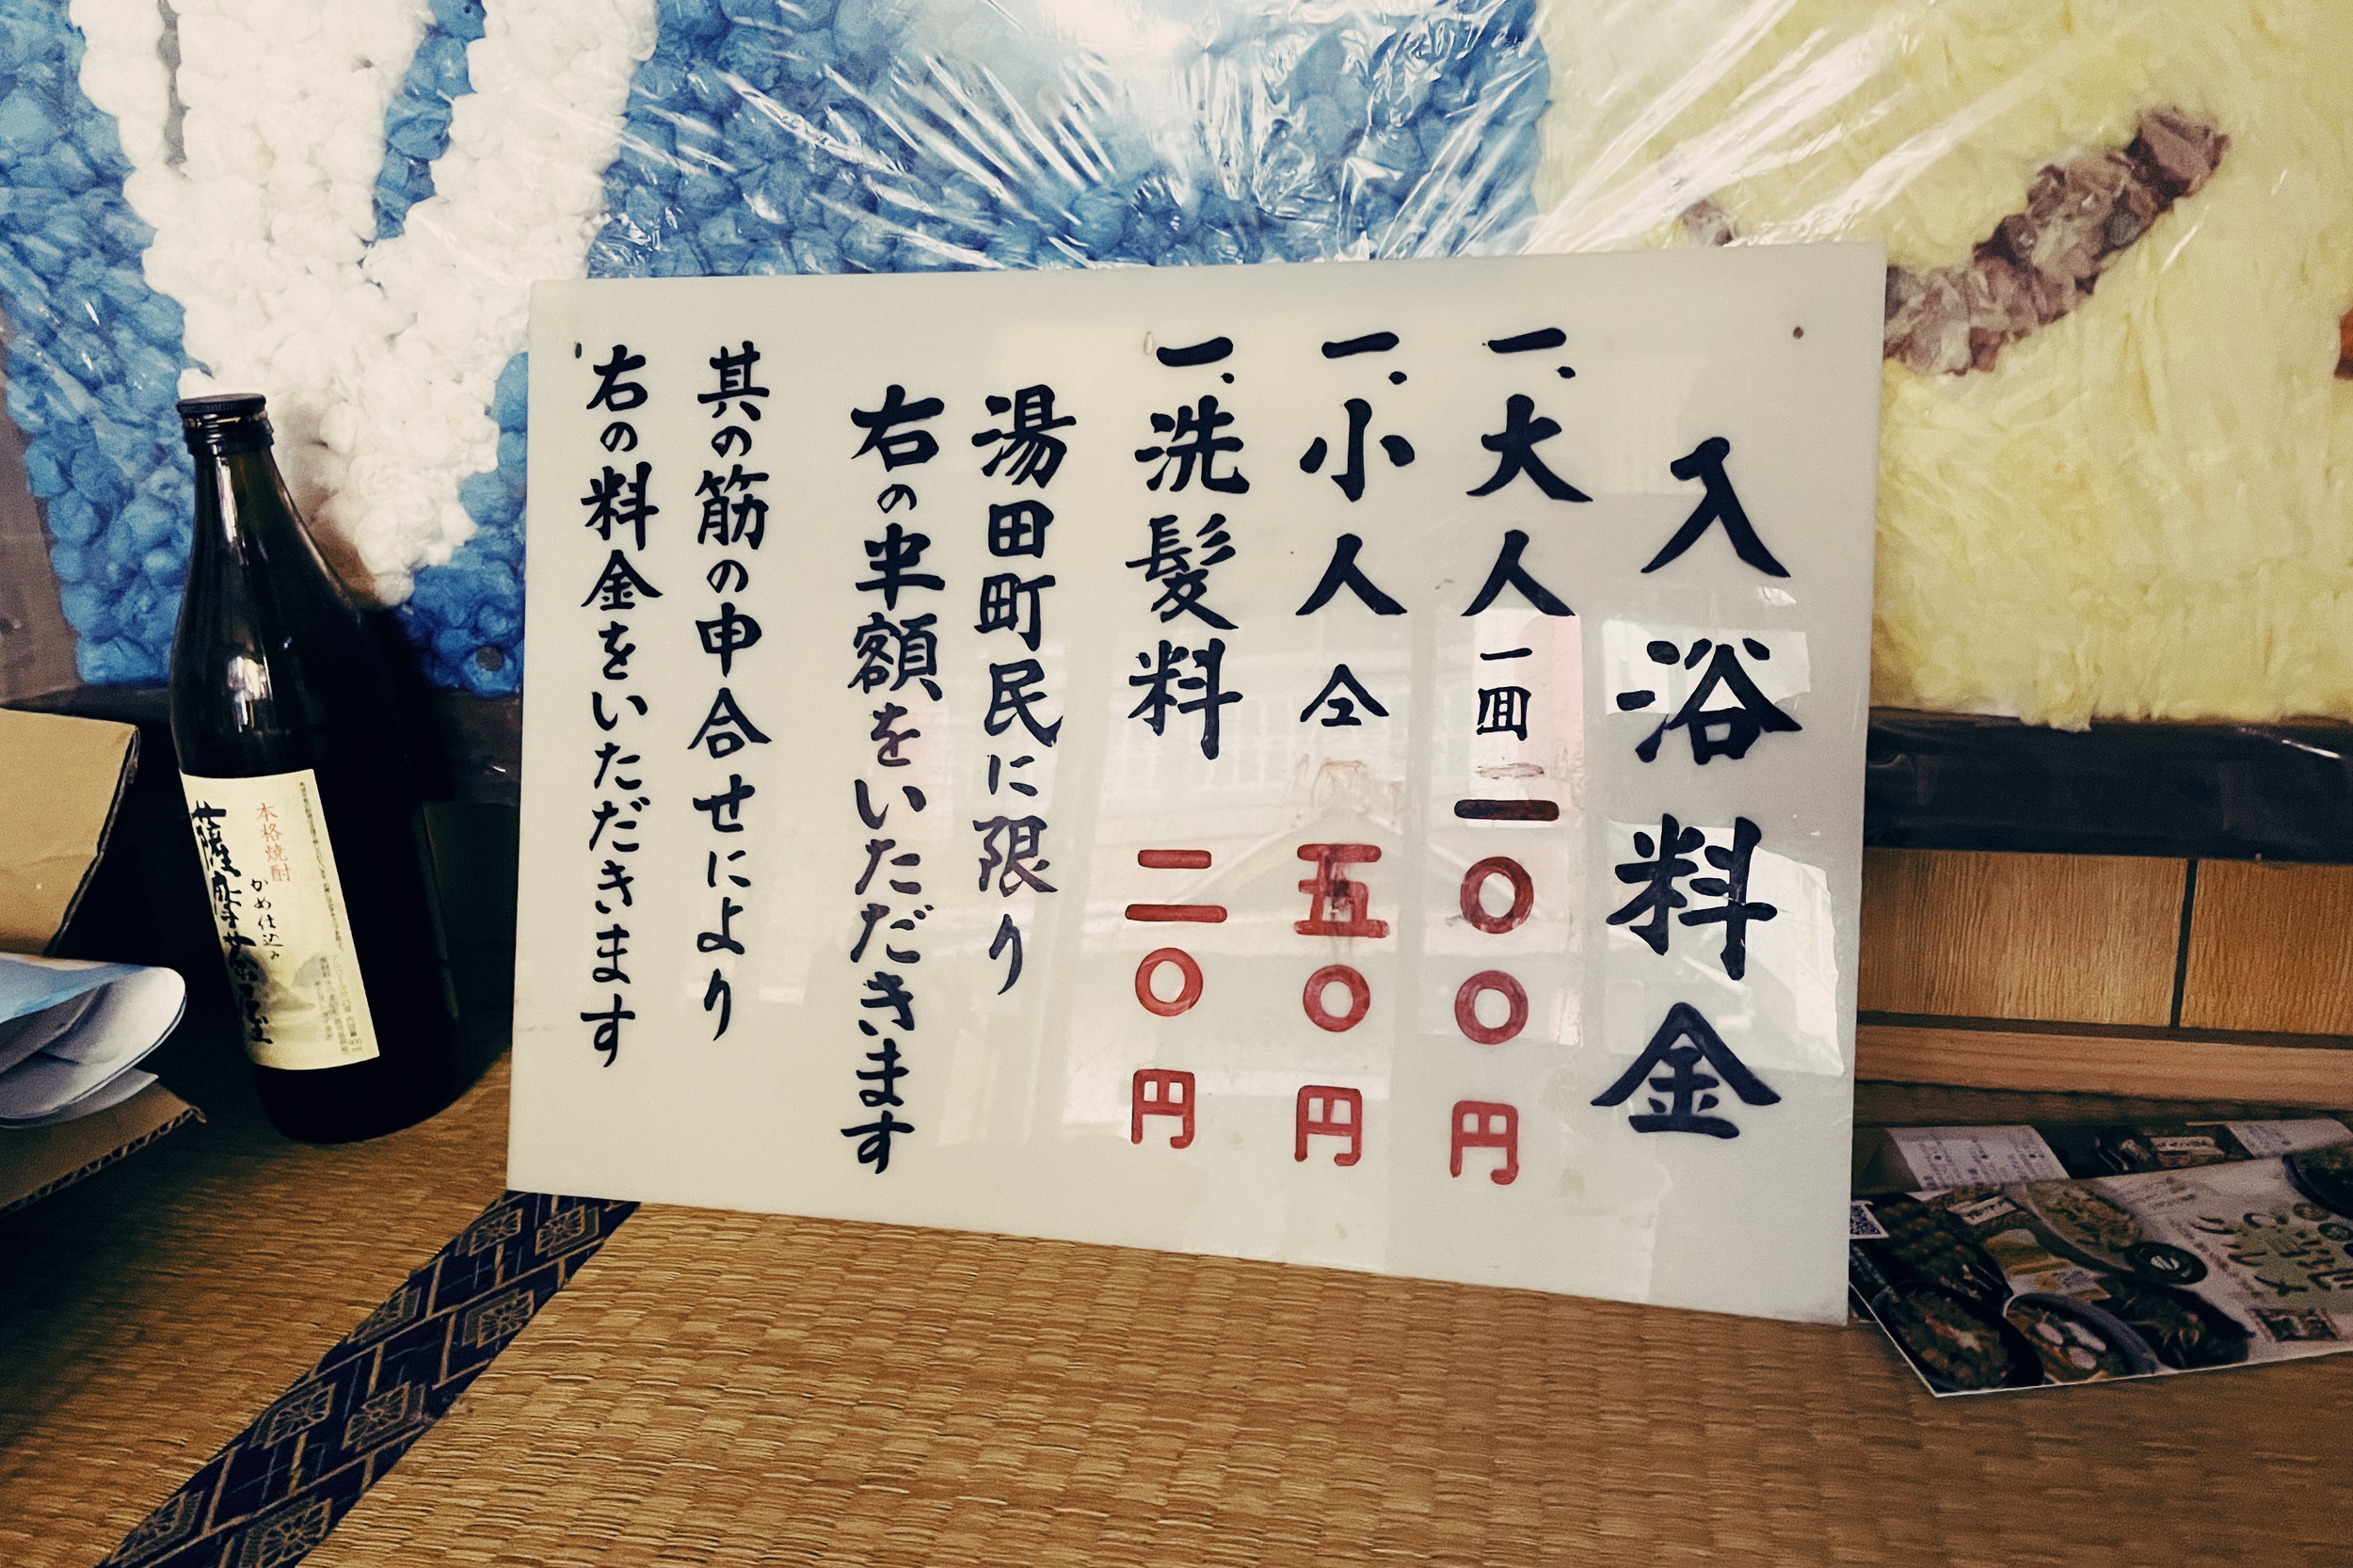 入浴料金
一、大人 一回 一〇〇円
一、小人 仝 五〇円
一、洗髪料 二〇円
湯田町民に限り
右の半額をいただきます
其の筋の申合せにより
右の料金をいただきます
本格焼酎
かめ仕込み
薩摩茶屋